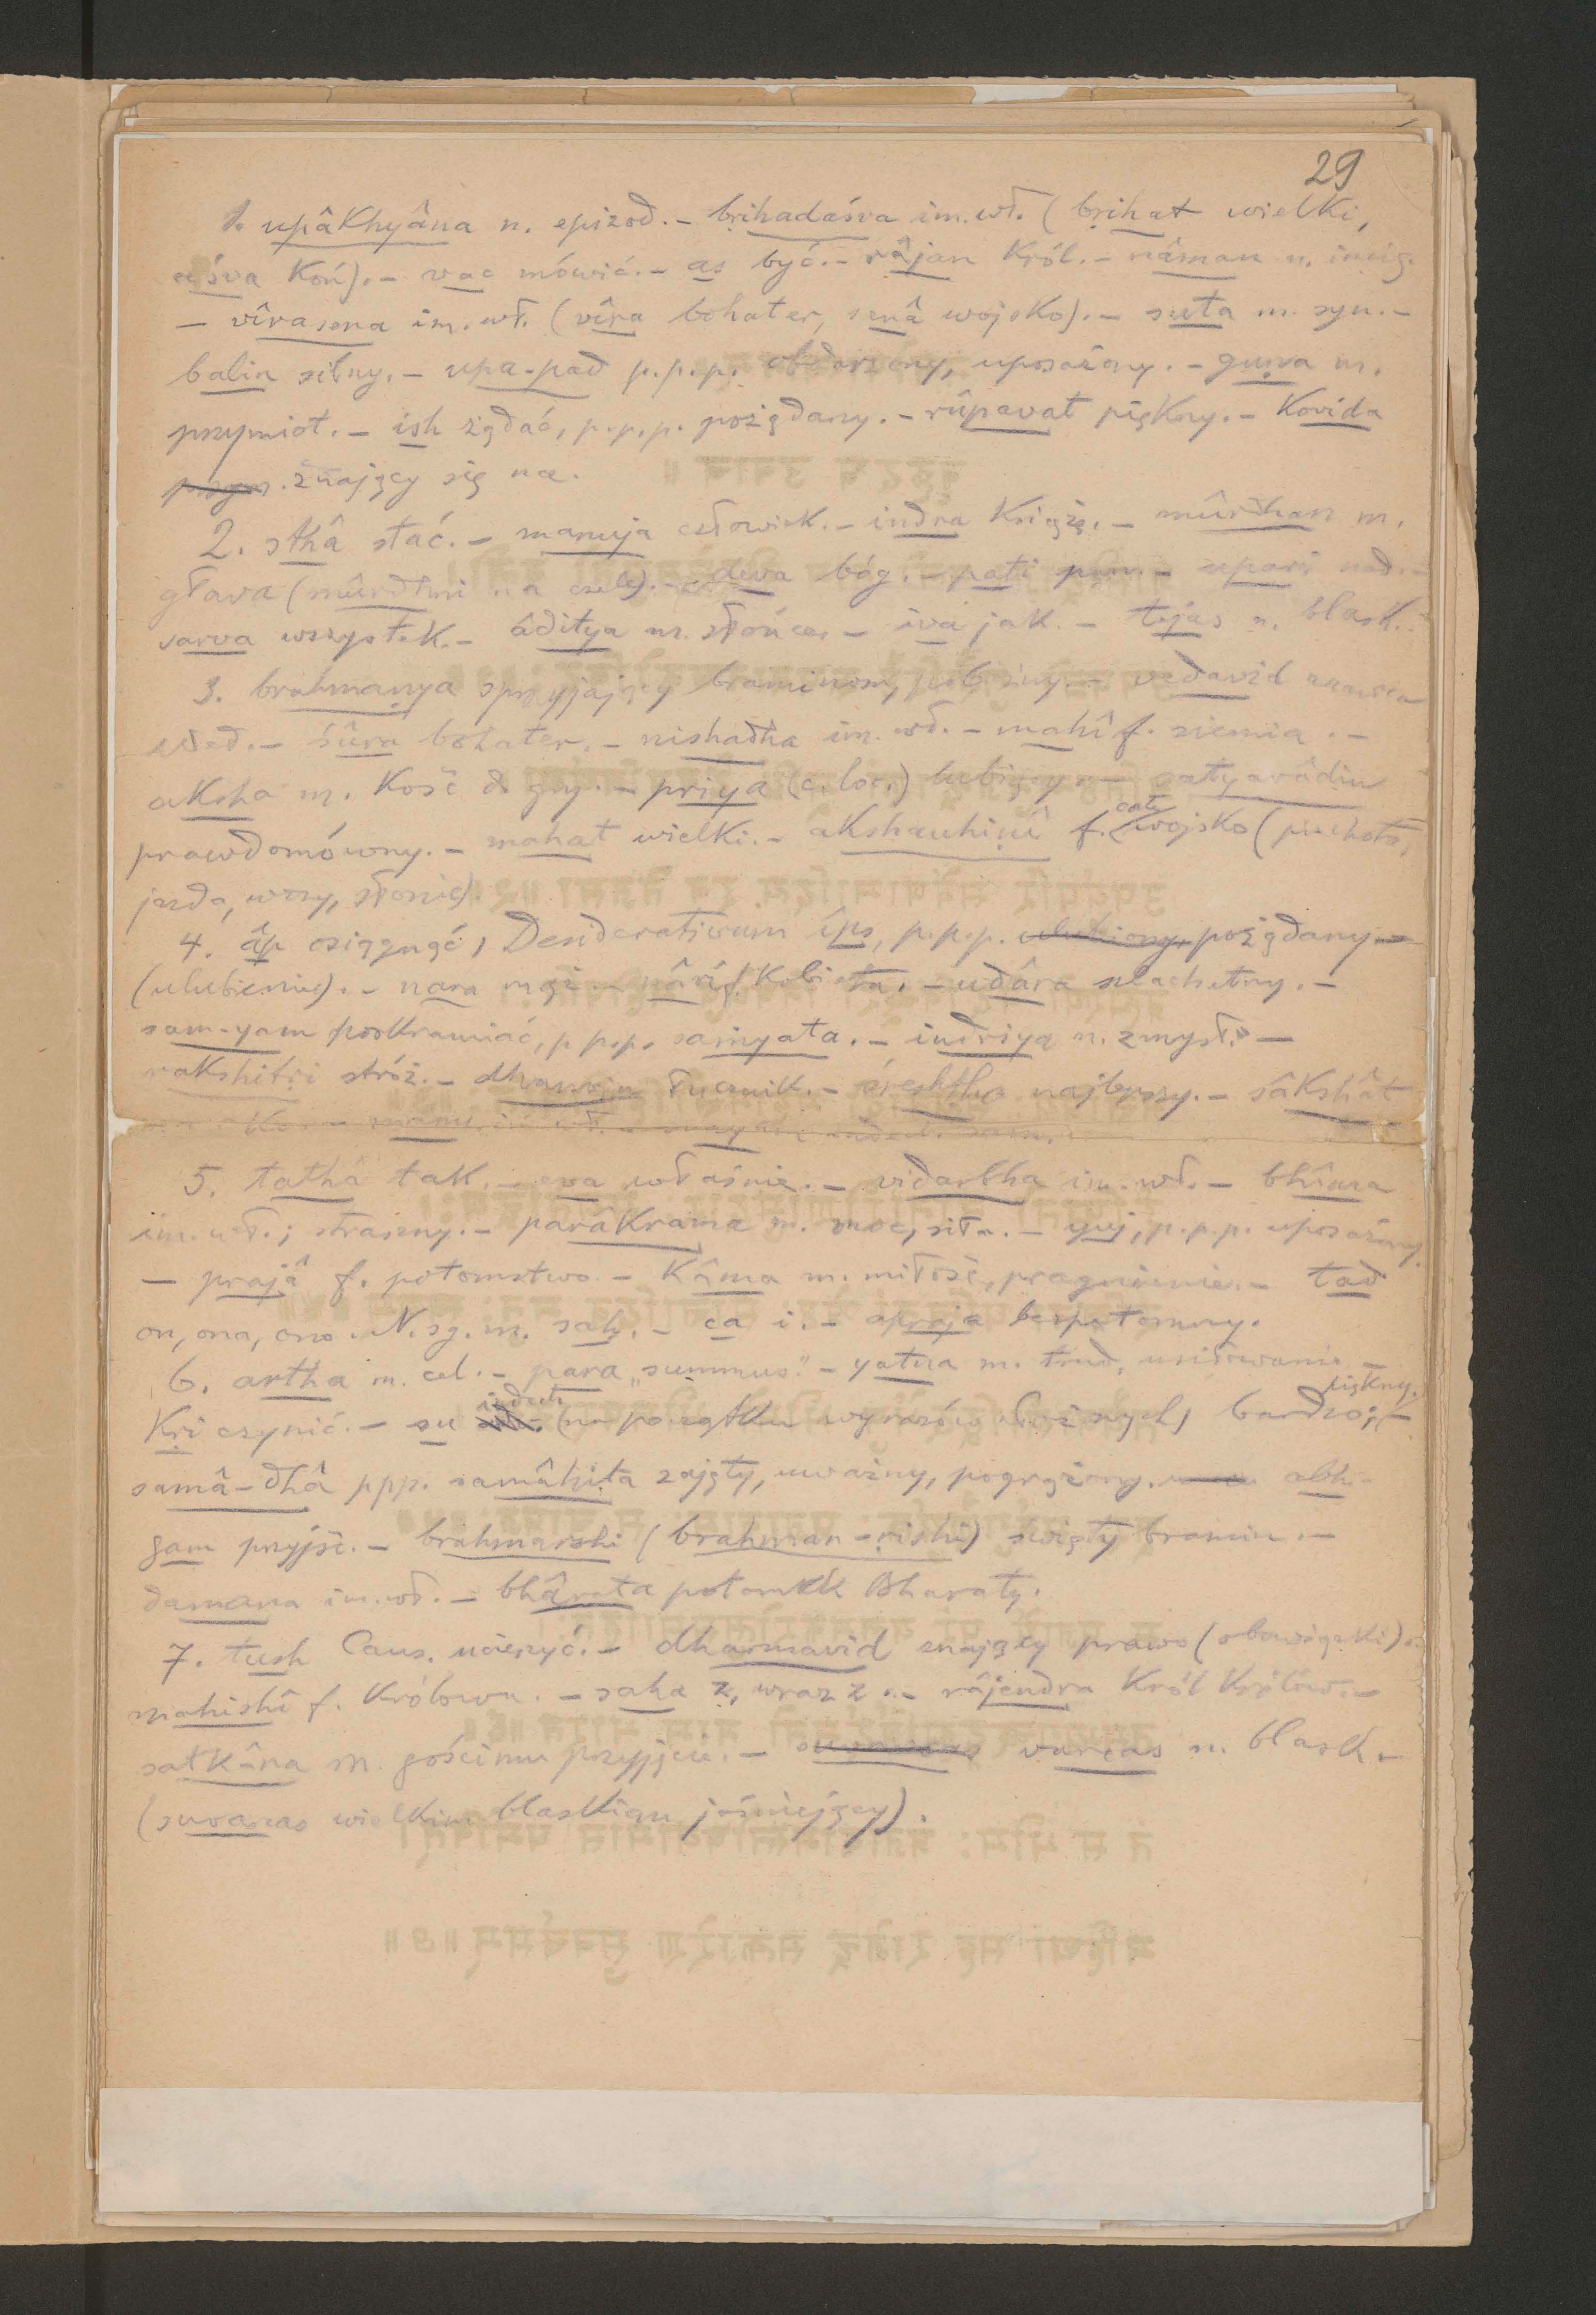 29
1. upâkhyâna n. epizod. - bṛihadaśva im. wł. (bṛihat wielki,
aśva koń). - vac mówić. - as być. - râjan król. - nâman n. imię.
- vîrasena im. wł. (vîra bohater, senâ wojsko). - suta m. syn. -
balin silny. - upa-pad p.p.p. obdarzony, uposażony. - guṇa m.
przymiot. - ish żądać, p.p.p. pożądany. - rûpavat piękny. - kovida
znający się na.
2. sthâ stać. - manuja człowiek. - indra książę. - mûrdhan m.
głowa (mûrdhni na czele). - deva bóg. - pati pan. - upari nad. -
sarva wszystek. - âditya m. słońce. - iva jak. - tejas n. blask.
3. brahmaṇya sprzyjający braminom, pobożny. - vedavid znawca
Wed. - śûra bohater. - nishadha im. wł. - mahî f. ziemia. -
aksha m. kość do gry. - priya (c. loc.) lubiący. - satyavâdin
prawdomówny. - mahat wielki. - akshauhiṇî f. całe wojsko (piechota,
jazda, wozy, słonie).
4. âp osiągnąć, Desiderativum îps, p.p.p. ulubiony, pożądany
(ulubienie). - nara mąż. - nârî f. kobieta. - udâra szlachetny. -
sam-yam poskramiać, p.p.p. saṃyata. - indriya n. zmysł. -
rakshitṛi stróż. - dhanvin łucznik. - śreshṭha najlepszy. - sâkshât
manu im. wł.
5. tathâ tak. - eva właśnie. - vidarbha im. wł. - bhîma
im. wł.; straszny. - parâkrama m. moc, siła. - yuj, p.p.p. uposażony.
- prajâ f. potomstwo. - kâma m. miłość, pragnienie. - tad
on, ona, ono. N. sg. m. saḥ. - ca i. - apraja bezpotomny.
6. artha m. cel. - para „summus". - yatna m. trud, usiłowanie -
kṛi czynić. - su indecl. (na początku wyrazów złożonych) bardzo; piękny. -
samâ-dhâ ppp. samâhita zajęty, uważny, pogrążony. abhi-
gam przyjść. - brahmarshi (brahman-ṛishi) święty bramin. -
damana im. wł. - bhârata potomek Bharaty.
7. tush Caus. ucieszyć. - dharmavid znający prawo (obowiązki). -
mahishî f. królowa. - saha z, wraz z. - râjendra król królów. -
satkâra m. gościnne przyjęcie. - varcas n. blask. -
(suvarcas wielkim blaskiem jaśniejący).